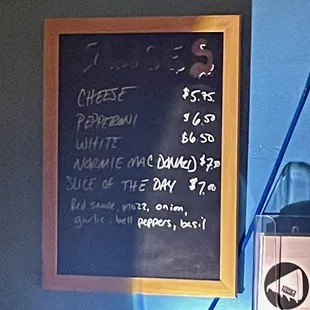 SLICES
CHEESE $5.75
PEPPERONI $6.50
WHITE $6.50
NORMIE MAC DONALD $7.00
SLICE OF THE DAY $7.00
Red sauce, mozz, onion,
garlic, bell peppers, basil